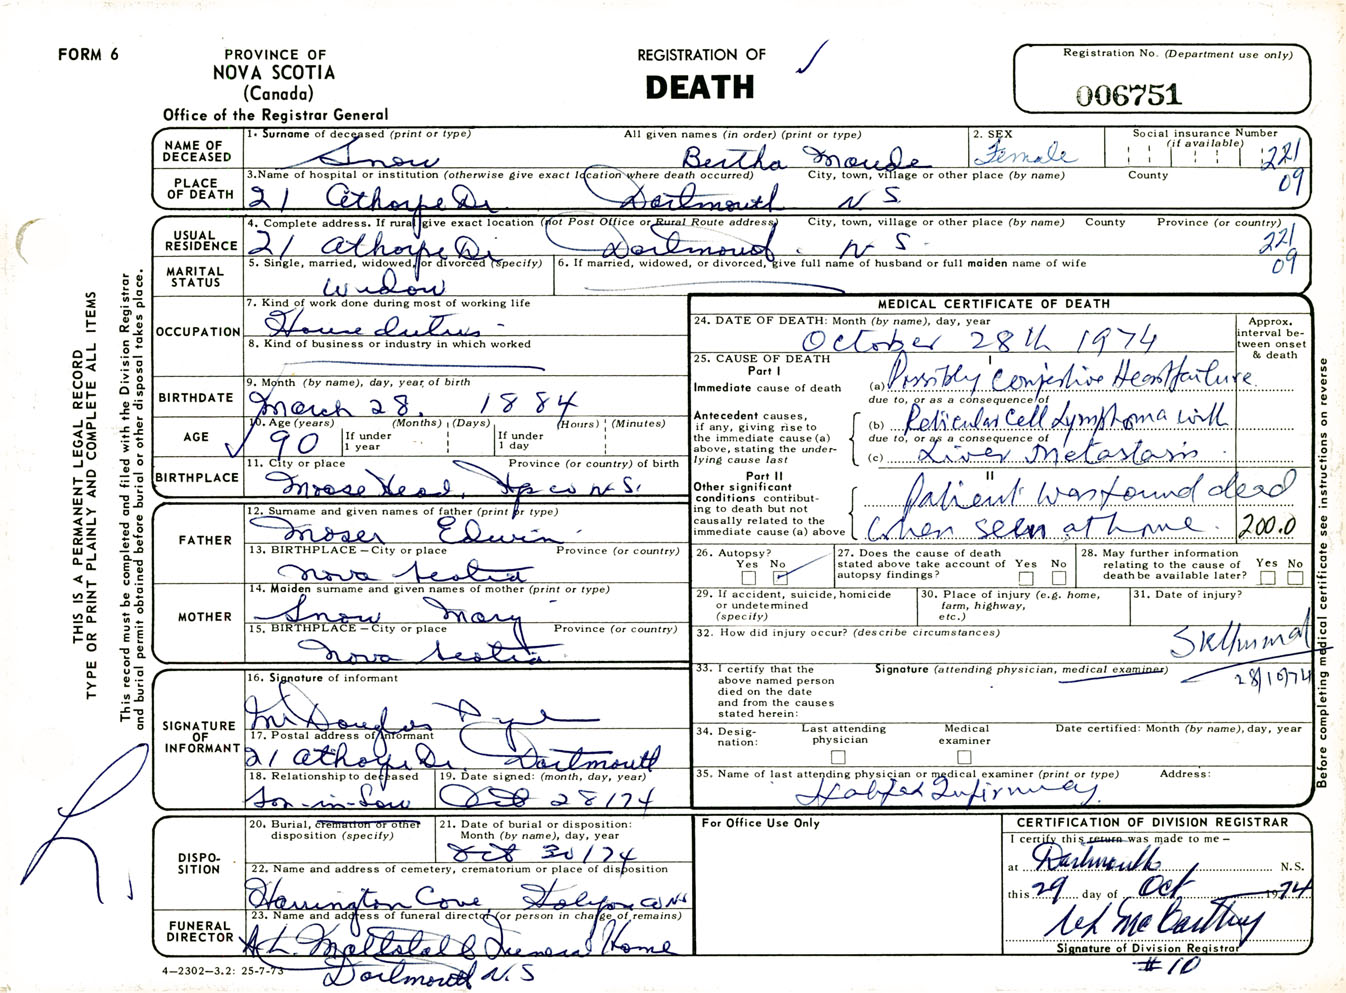 FORM 6
PROVINCE OF
NOVA SCOTIA
(Canada)
Office of the Registrar General
REGISTRATION OF
DEATH
Registration No. (Department use only)
006751
THIS IS A PERMANENT LEGAL RECORD
TYPE OR PRINT PLAINLY AND COMPLETE ALL ITEMS
This record must be completed and filed with the Division Registrar
and burial permit obtained before burial or other disposal takes place.
NAME OF DECEASED
1. Surname of deceased (print or type) All given names (in order) (print or type)
Snow Bertha Maude
2. SEX
Female
Social insurance Number
(if available)
221
09
PLACE OF DEATH
3. Name of hospital or institution (otherwise give exact location where death occurred) City, town, village or other place (by name) County
21 Athorpe Dr. Dartmouth N S.
USUAL RESIDENCE
4. Complete address. If rural give exact location (not Post Office or Rural Route address) City, town, village or other place (by name) County Province (or country)
21 Athorpe Dr Dartmouth. N S.
221
09
MARITAL STATUS
5. Single, married, widowed, or divorced (specify)
widow
6. If married, widowed, or divorced, give full name of husband or full maiden name of wife
OCCUPATION
7. Kind of work done during most of working life
House duties
8. Kind of business or industry in which worked
BIRTHDATE
9. Month (by name), day, year, of birth
March 28, 1884
AGE
10. Age (years) (Months) (Days) (Hours) (Minutes)
90 If under 1 year If under 1 day
BIRTHPLACE
11. City or place Province (or country) of birth
Moose Head, Hfx co N.S.
FATHER
12. Surname and given names of father (print or type)
Moser Edwin
13. BIRTHPLACE – City or place Province (or country)
Nova Scotia
MOTHER
14. Maiden surname and given names of mother (print or type)
Snow Mary
15. BIRTHPLACE – City or place Province (or country)
Nova Scotia
SIGNATURE OF INFORMANT
16. Signature of informant
Mr Douglas Pye
17. Postal address of informant
21 Athorpe Dr. Dartmouth
18. Relationship to deceased
Son-in-Law
19. Date signed: (month, day, year)
Oct 28/74
DISPO-
SITION
20. Burial, cremation or other disposition (specify)
21. Date of burial or disposition:
Month (by name), day, year
Oct 30/74
22. Name and address of cemetery, crematorium or place of disposition
Harrington Cove Halifax Co NS
FUNERAL DIRECTOR
23. Name and address of funeral director (or person in charge of remains)
A.L. Mattatall Funeral Home
Dartmouth N.S
4–2302–3.2: 25-7-73
MEDICAL CERTIFICATE OF DEATH
24. DATE OF DEATH: Month (by name), day, year
October 28th 1974
Approx. interval be-
tween onset & death
25. CAUSE OF DEATH
Part I
I
Immediate cause of death
(a) Possibly Conjestive Heart failure
due to, or as a consequence of
Antecedent causes, if any, giving rise to the immediate cause (a) above, stating the under-
lying cause last
(b) Reticular Cell Lymphoma with
due to, or as a consequence of
(c) Liver Metastasis.
Part II
II
Other significant conditions contribut-
ing to death but not causally related to the immediate cause (a) above
Patient was found dead
when seen at home.
200.0
26. Autopsy?
Yes No
27. Does the cause of death stated above take account of autopsy findings? Yes No
28. May further information relating to the cause of death be available later? Yes No
29. If accident, suicide, homicide or undetermined (specify)
30. Place of injury (e.g. home, farm, highway, etc.)
31. Date of injury?
32. How did injury occur? (describe circumstances)
33. I certify that the above named person died on the date and from the causes stated herein:
Signature (attending physician, medical examiner)
28/10/74
34. Desig-
nation:
Last attending physician
Medical examiner
Date certified: Month (by name), day, year
35. Name of last attending physician or medical examiner (print or type) Address:
Halifax Infirmary
Before completing medical certificate see instructions on reverse
For Office Use Only
CERTIFICATION OF DIVISION REGISTRAR
I certify this return was made to me –
at Dartmouth N.S.
this 29 day of Oct 1974
McCarthy
Signature of Division Registrar
#10